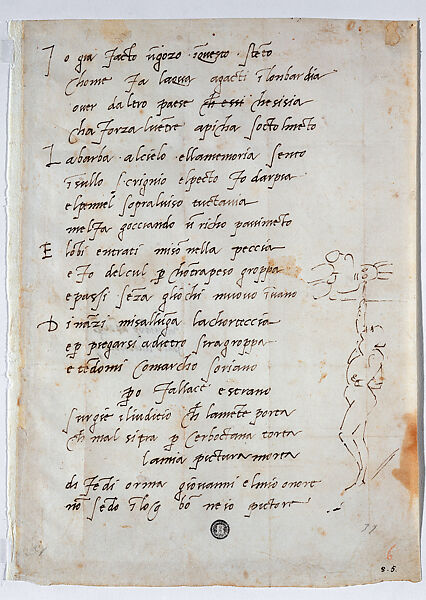 I o gia facto ngozo inquesto steto
chome fa lacqua agacti ilonbardia
over daltro paese che essi chesisia
cha forza lventre apicha socto lmeto
L abarba alcielo ellamemoria sento
insullo scrignio elpecto fo darpia
elpennel sopraluiso tuctavia
melfa gocciando u richo pauimeto
E lobi entrati miso nella peccia
e fo delcul p chotrapeso groppa
e passi seza gliochi muovo invano
D inazi misallunga lachorteccia
ep piegarsi adietro siragroppa
e tedomi comarcho soriano
po fallace e strano
surgie iliuditio ch lamete porta
ch mal sitra p cerboctana torta
lamia pictura morta
difedi orma giovanni elmio onore
no sedo iloco bo ne io pictore
77
6
8.5.